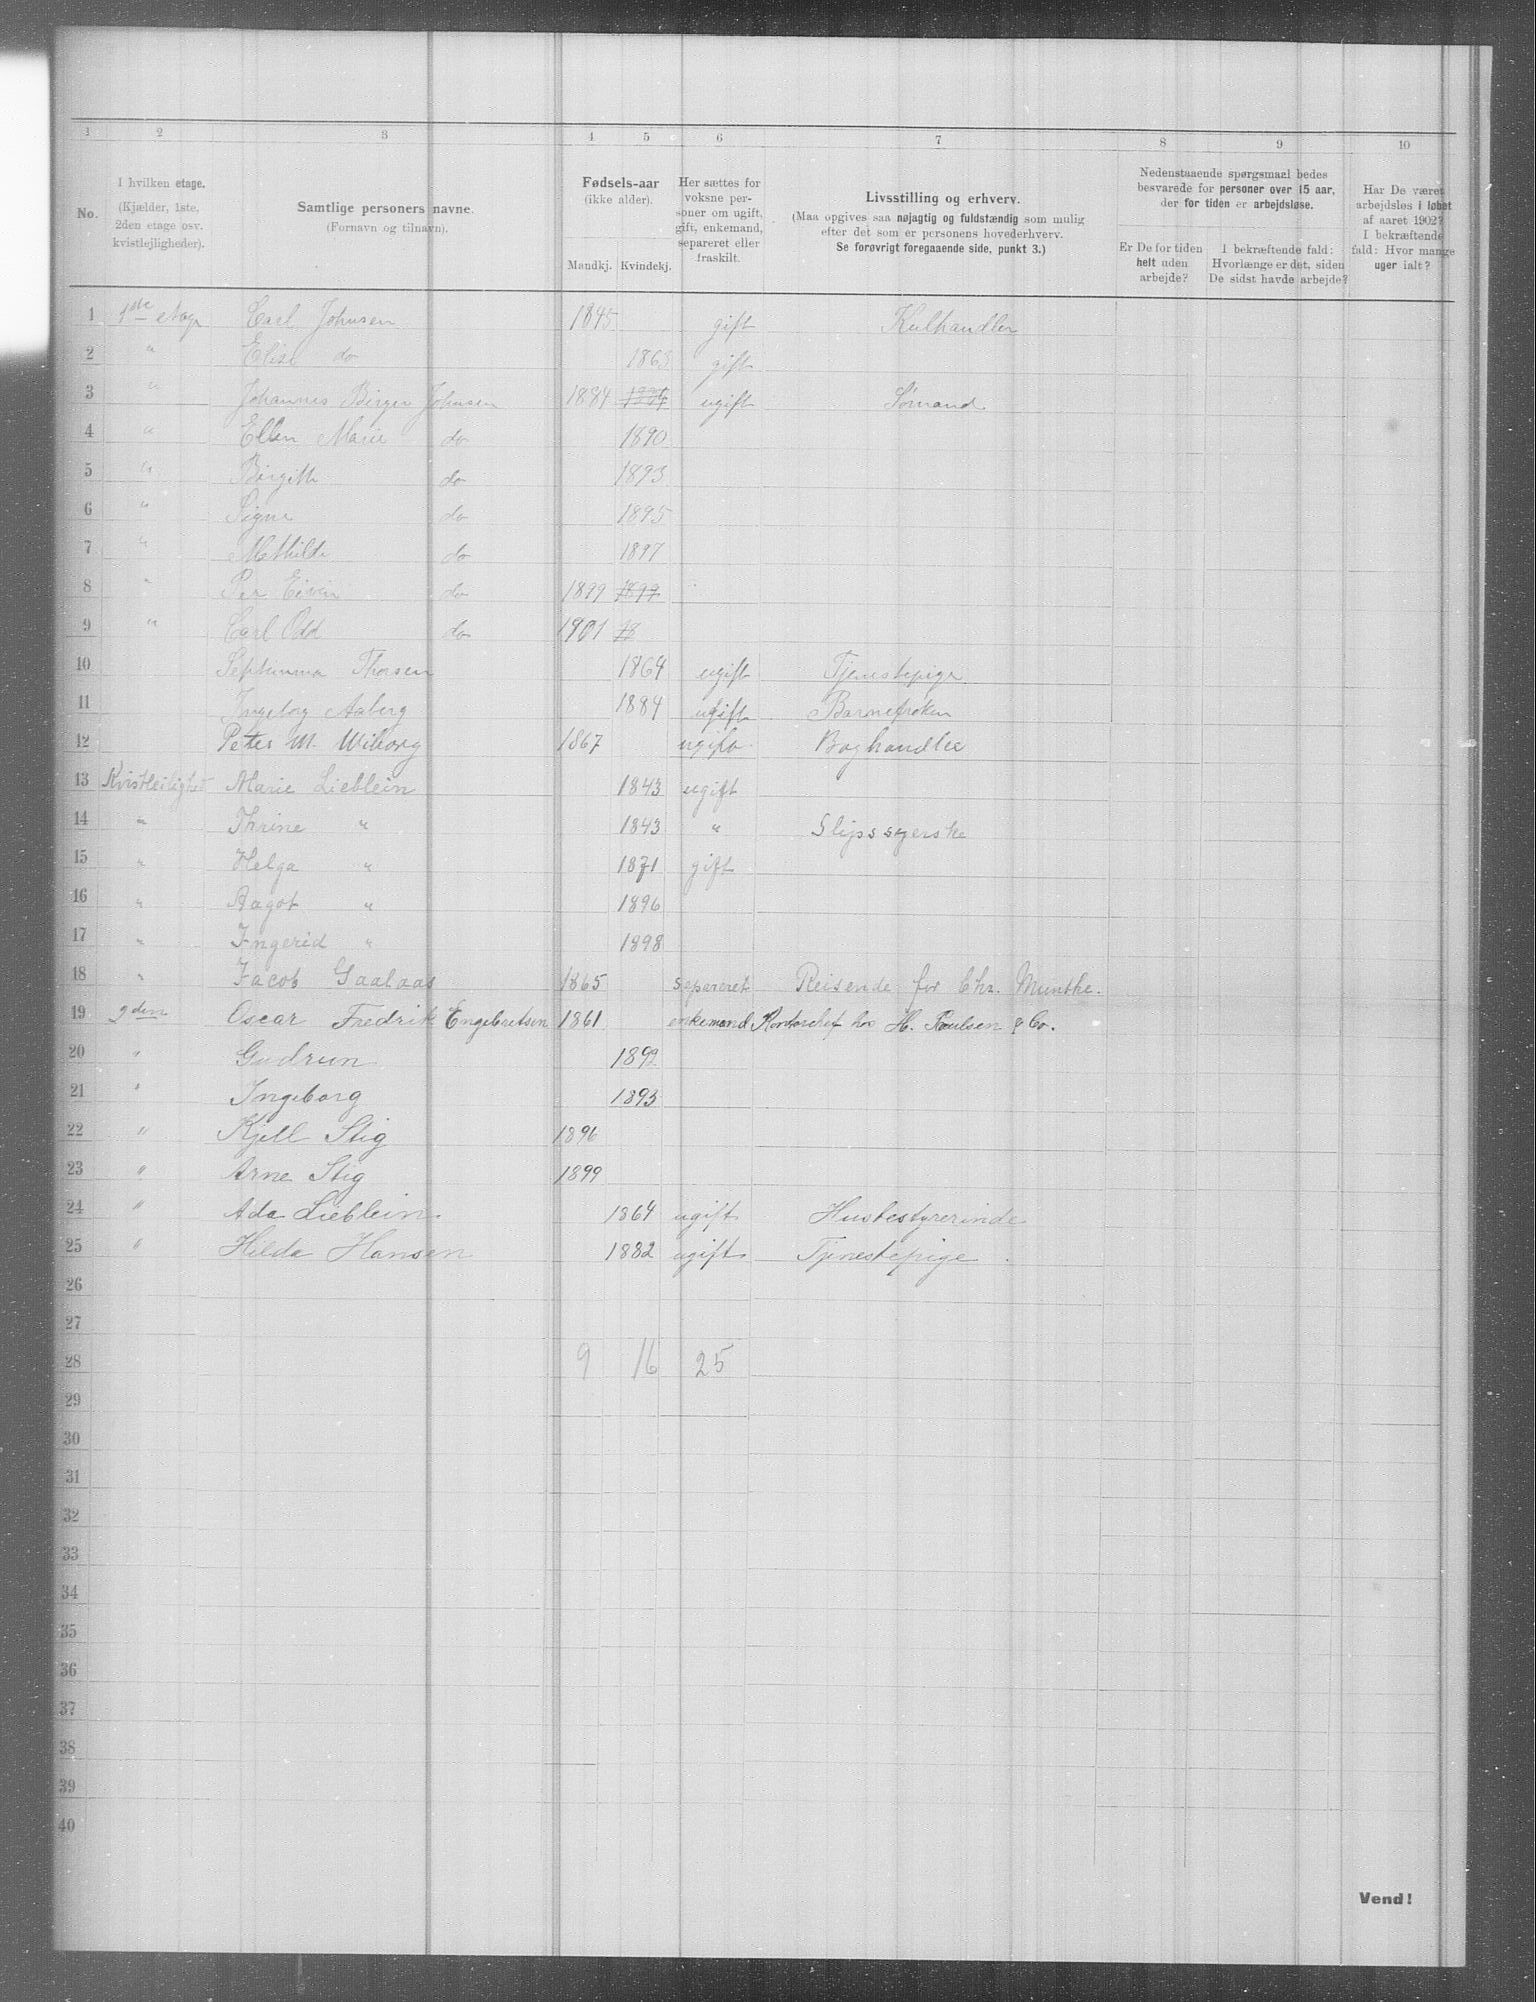 1 2 3 4 5 6 7 8 9 10
No.
I hvilken etage.
(Kjælder, 1ste,
2den etage osv.
kvistlejligheder).
Samtlige personers navne.
(Fornavn og tilnavn).
Fødsels-aar
(ikke alder).
Mandkj. Kvindekj.
Her sættes for
voksne per-
soner om ugift,
gift, enkemand,
separeret eller
fraskilt.
Livsstilling og erhverv.
(Maa opgives saa nøjagtig og fuldstændig som mulig
efter det som er personens hovederhverv.
Se forøvrigt foregaaende side, punkt 3.)
Nedenstaaende spørgsmaal bedes
besvarede for personer over 15 aar,
der for tiden er arbejdsløse.
Er De for tiden
helt uden
arbejde?
I bekræftende fald:
Hvorlænge er det, siden
De sidst havde arbejde?
Har De været
arbejdsløs i løbet
af aaret 1902?
I bekræftende
fald: Hvor mange
uger ialt?
1 1ste etage Carl Johnsen 1845 gift Kulhandler
2 " Elise do 1863 gift
3 " Johannes Birger Johnsen 1884 ugift Sømand
4 " Ellen Marie do 1890
5 " Birgith do 1893
6 " Signe do 1895
7 " Mathilde do 1897
8 " Per Eivin do 1899 1897
9 " Carl Odd do 1901 18
10 Septimma Thorsen 1864 ugift Tjenestepige
11 Ingeborg Aaberg 1884 ugift Barnefrøken
12 Petter M. Wiborg 1867 ugift Boghandler
13 Kvistleilighet Marie Lieblein 1843 ugift
14 " Thrine " 1843 " Slipssyerske
15 " Helga " 1871 gift
16 " Aagot " 1896
17 " Ingerid " 1898
18 " Jacob Gaalaas 1865 separeret Reisende for Chr. Munthe.
19 2den Oscar Fredrik Engebretsen 1861 enkemand Kontorchef hos H. Poulsen & Co.
20 " Gudrun 1892
21 " Ingeborg 1893
22 " Kjell Stig 1896
23 " Arne Stig 1899
24 " Ada Lieblein 1864 ugift Husbestyrerinde
25 " Hilda Hansen 1882 ugift Tjenestepige
26
27
28 9 16 25
29
30
31
32
33
34
35
36
37
38
39
40
Vend!